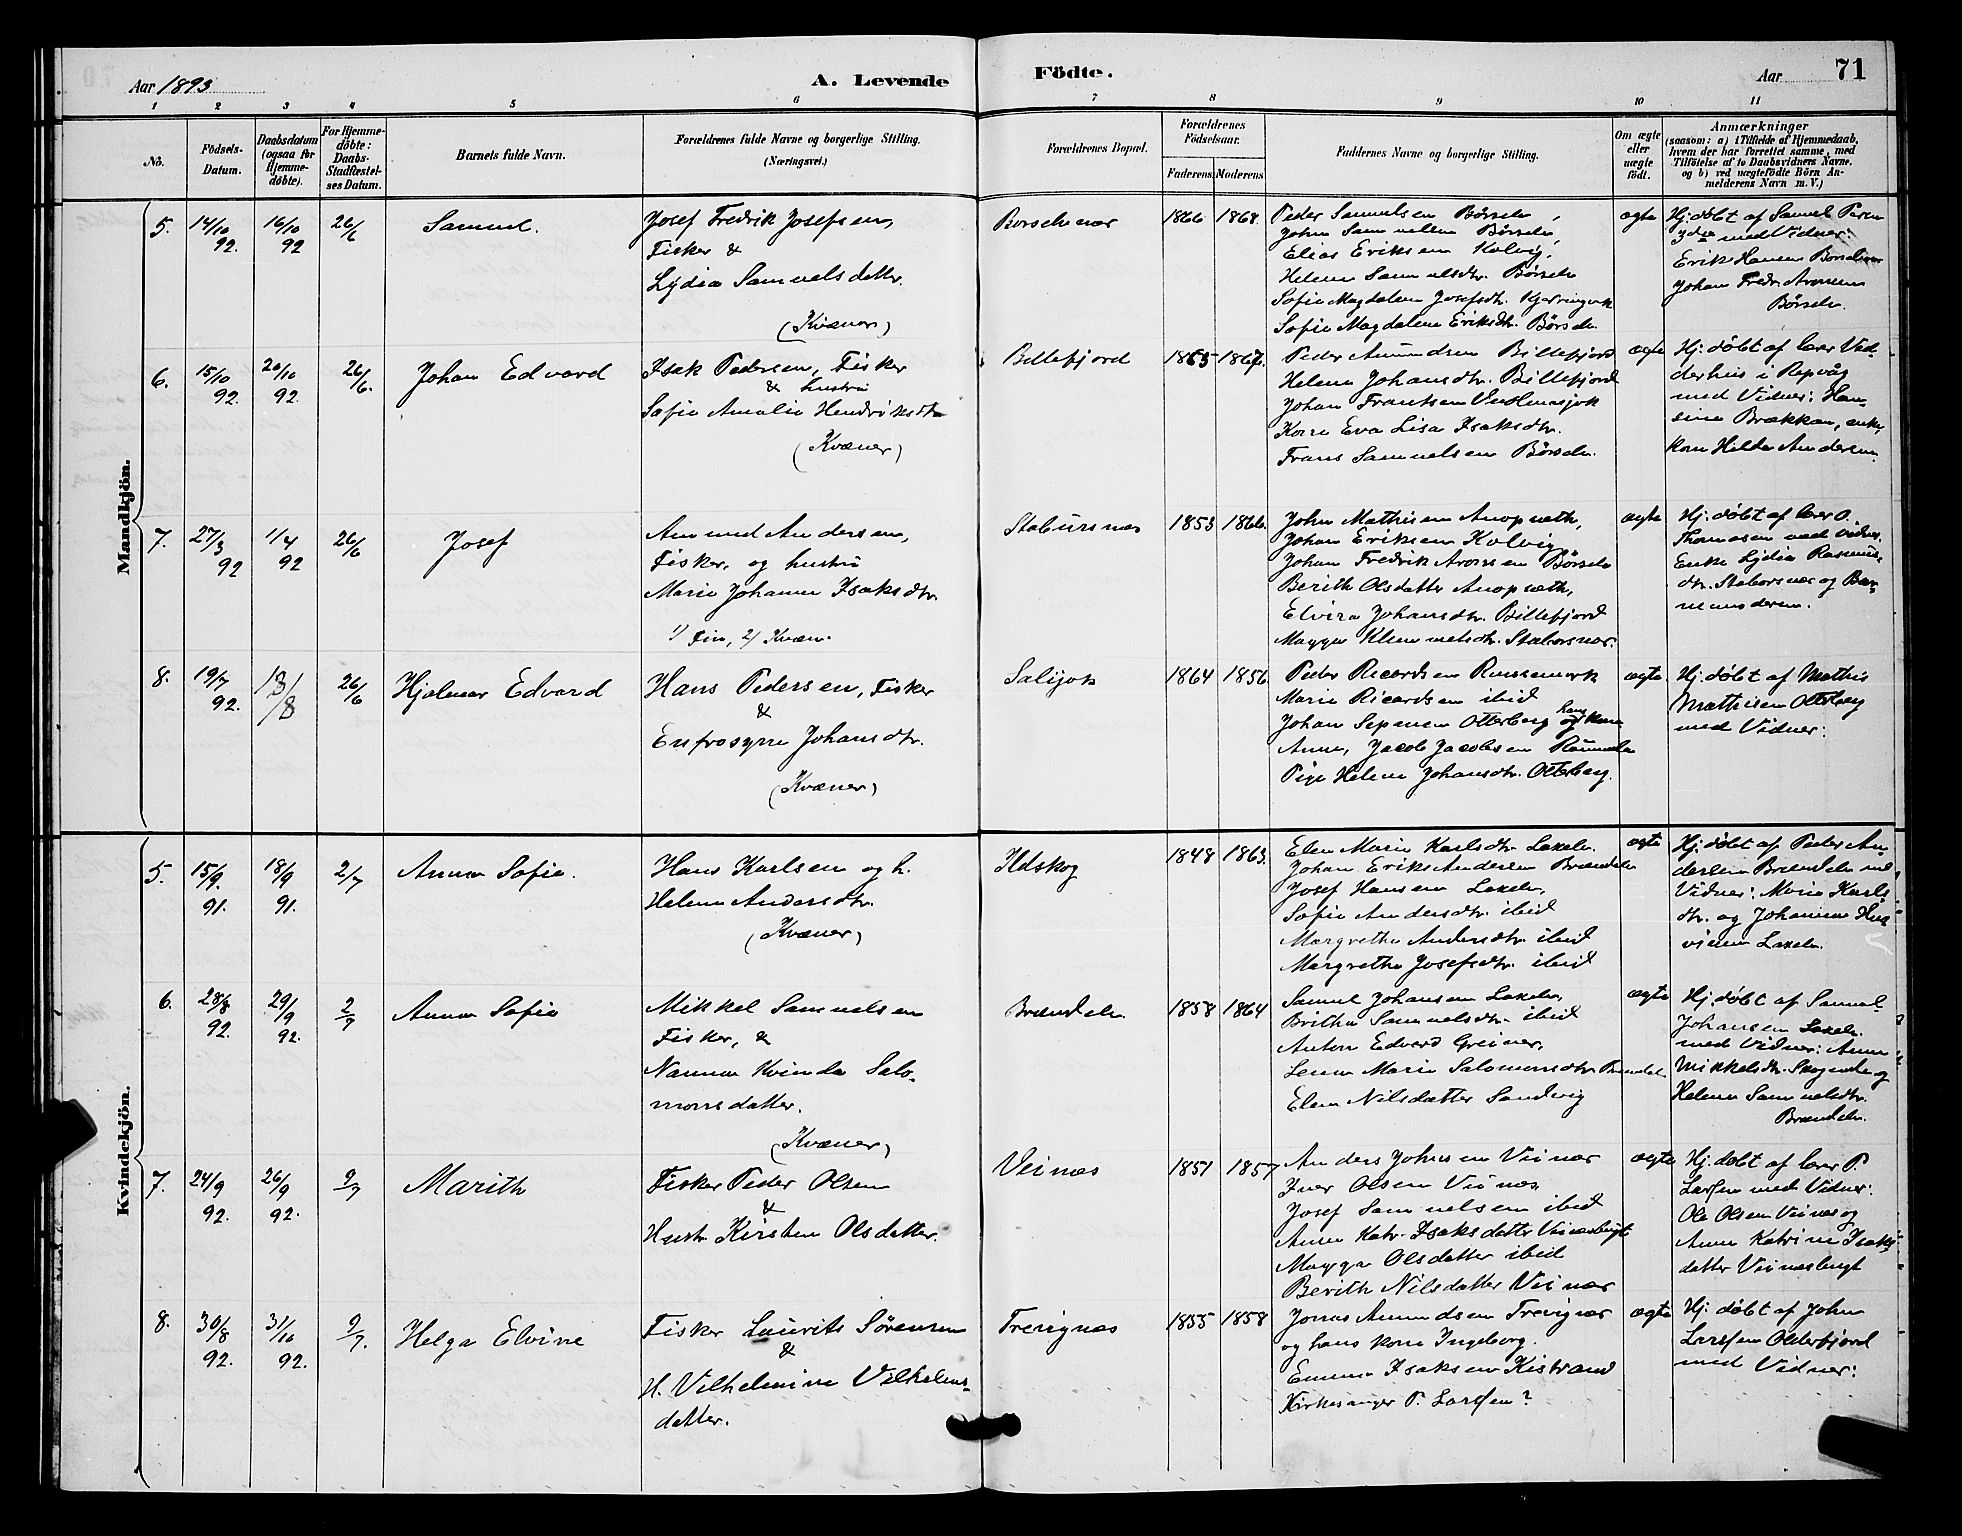 Aar 1893
A. Levende Födte.
Aar 71
1 2 3 4 5 6 7 8 9 10 11
No.
Födsels-Datum.
Daabsdatum (ogsaa for Hjemme-döbte).
For Hjemme-döbte: Daabs-Stadfæstel-ses Datum.
Barnets fulde Navn.
Forældrenes fulde Navne og borgerlige Stilling.
(Næringsvei.)
Forældrenes Bopæl.
Forældrenes Födselsaar.
Faderens. Moderens.
Faddernes Navne og borgerlige Stilling.
Om ægte eller uægte födt.
Anmærkninger
(saasom: a) i Tilfælde af Hjemmedaab,
hvem der har forrettet samme, med
Tilföielse af to Daabsvidners Navne.
og b) ved uægtefödte Börn An-
melderens Navn m. V.)
Mandkjön.
5. 14/10 92. 16/10 92 26/6 Samuel.
Josef Fredrik Josefsen,
Fisker &
Lydia Samuelsdatter.
(Kvæner)
Børselvnær 1866 1868.
Peder Samuelsen Børselv,
John Samuelsen Børselv,
Elias Eriksen Kolvig,
Helene Samuelsdtr. Børselv
Sofie Magdalena Josefsdtr. Kjerringvik
Sofie Magdalena Eriksdtr. Børselv.
ægte
Hj. døbt af Samuel
med Vidner:
Erik Hansen Børselvnær
Johan Fredr. Aronsen
Børselv.
6. 15/10 92. 20/10 92. 26/6. Johan Edvard
Isak Pedersen, Fisker
& hustru
Sofie Amalie Hendriksdtr
(Kvæner)
Billefjord 1865 1867.
Peder Amundsen Billefjord
Helene Johansdtr. Billefjord
Johan Frantsen
Kone Eva Lisa Isaksdtr.
Frans Samuelsen Børselv.
ægte
Hj. døbt af lærer Ved-
derhus i Repvåg
med Vidner: Han-
sine Brækkan, enke-
kone Hilda Andersen
7. 27/3 92 1/4 92 26/6 Josef
Amund Andersen,
Fisker, og hustru
Marie Johanne Isaksdtr.
1/ Fin, 2/ Kvæn.
Stabursnæs 1853 1866.
John Mathisen Anopræth,
Johan Eriksen Kolvig
Johan Fredrik Aronsen Børselv
Berith Olsdatter Anopræth,
Elvira Johansdtr. Billefjord
Magga Klemmetsdtr. Stabursnæs.
ægte
Hj. døbt af lærer O.
Thomasen med vidner
Enke Lydia Rasmus-
dtr. Stabursnæs og Bar-
nemoderen.
8. 19/7 92. 13/8 26/6 Hjalmar Edvard
Hans Pedersen, Fisker
&
Eufrosyne Johansdtr.
(Kvæner)
Salijok 1864 1856.
Peder Ricardsen Russemark
Marie Ricardsen ibid
Johan Sipenen Otterberg og hans kone
Anna, Jacob Jacobsen
Pige Helene Johansdtr. Otterberg.
ægte
Hj. døbt af Mathis
Mathisen Otterberg
med Vidner:
Kvindekjön.
5. 15/9. 91. 18/9 91. 2/7 Anna Sofie.
Hans Karlsen og h.
Helene Andersdtr.
(Kvæner)
Ildskog 1848 1863.
Elen Marie Karlsdtr Laxelv.
Johan Eriks Andersen Brændelv
Josef Hansen Laxelv,
Sofie Andersdtr. ibid
Margrethe Andersdtr ibid
Margrethe Josefsdtr. ibid
ægte
Hj. døbt af Peder An-
dersen Brændelv med
Vidner: Marie Karls
dtr. og Johannes
Laxelv.
6. 28/8 92. 29/9 92. 2/7 Anna Sofie
Mikkel Samuelsen
Fisker, &
Nanna Kvinda Salo-
monsdatter.
(Kvæner)
Brændelv 1858 1864
Samuel Johansen Laxelv,
Britha Samuelsdtr. ibid
Anton Edvard Greiner,
Lena Marie Salomonsdtr Brændelv
Elen Nilsdatter Sandvig
ægte
Hj. døbt af Samuel
Johansen Laxelv.
med Vidner: Anna
Mikkelsdtr. og
Helene Samuelsdtr.
Brændelv.
7. 24/9 92. 26/9 92. 9/7 Marith
Fisker Peder Olsen
&
Hustr. Kirsten Olsdatter.
Veinæs 1851 1857
Anders Johnsen Veinæs
Iver Olsen Veinæs
Josef Samuelsen ibid
Anne Katr. Isaksdatter Veinæsbugt
Magga Olsdatter ibid
Berith Nilsdatter Veinæs
ægte
Hj. døbt af lærer P.
Larssen med Vidner:
Ole Olsen Veinæs og
Anne Katrine Isaks-
datter Veinæsbugt
8. 30/8 92. 31/10 92. 9/7. Helga Elvine
Fisker Laurits Sørensen
&
H. Vilhelmine Vilhelms-
datter.
Trevignæs 1855 1858
Jonas Amundsen Trevignæs
og hans kone Ingeborg.
Emma Isaksen Kistrand
Kirkesanger P. Larssen?
ægte
Hj. døbt af John
Larssen Olderfjord
med Vidner: